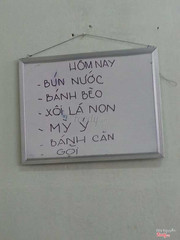 HÔM NAY
- BÚN NƯỚC
- BÁNH BÈO
- XÔI LÁ NON
- MỲ Ý
- BÁNH CĂN
GỎI